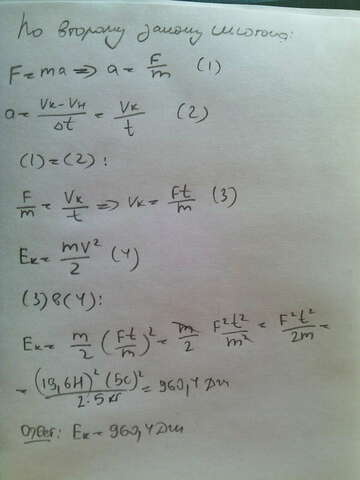 По второму закону Ньютона:
F = ma => a = F/m (1)
a = Vк-Vн/Δt = Vк/t (2)
(1) = (2) :
F/m = Vк/t => Vк = Ft/m (3)
Eк = mV²/2 (4)
(3) в (4) :
Eк = m/2 (Ft/m)² = m/2 F²t²/m² = F²t²/2m =
= (19,6Н)² (5с)²/2·5кг = 960,4 Дж
Ответ: Eк = 960,4 Дж